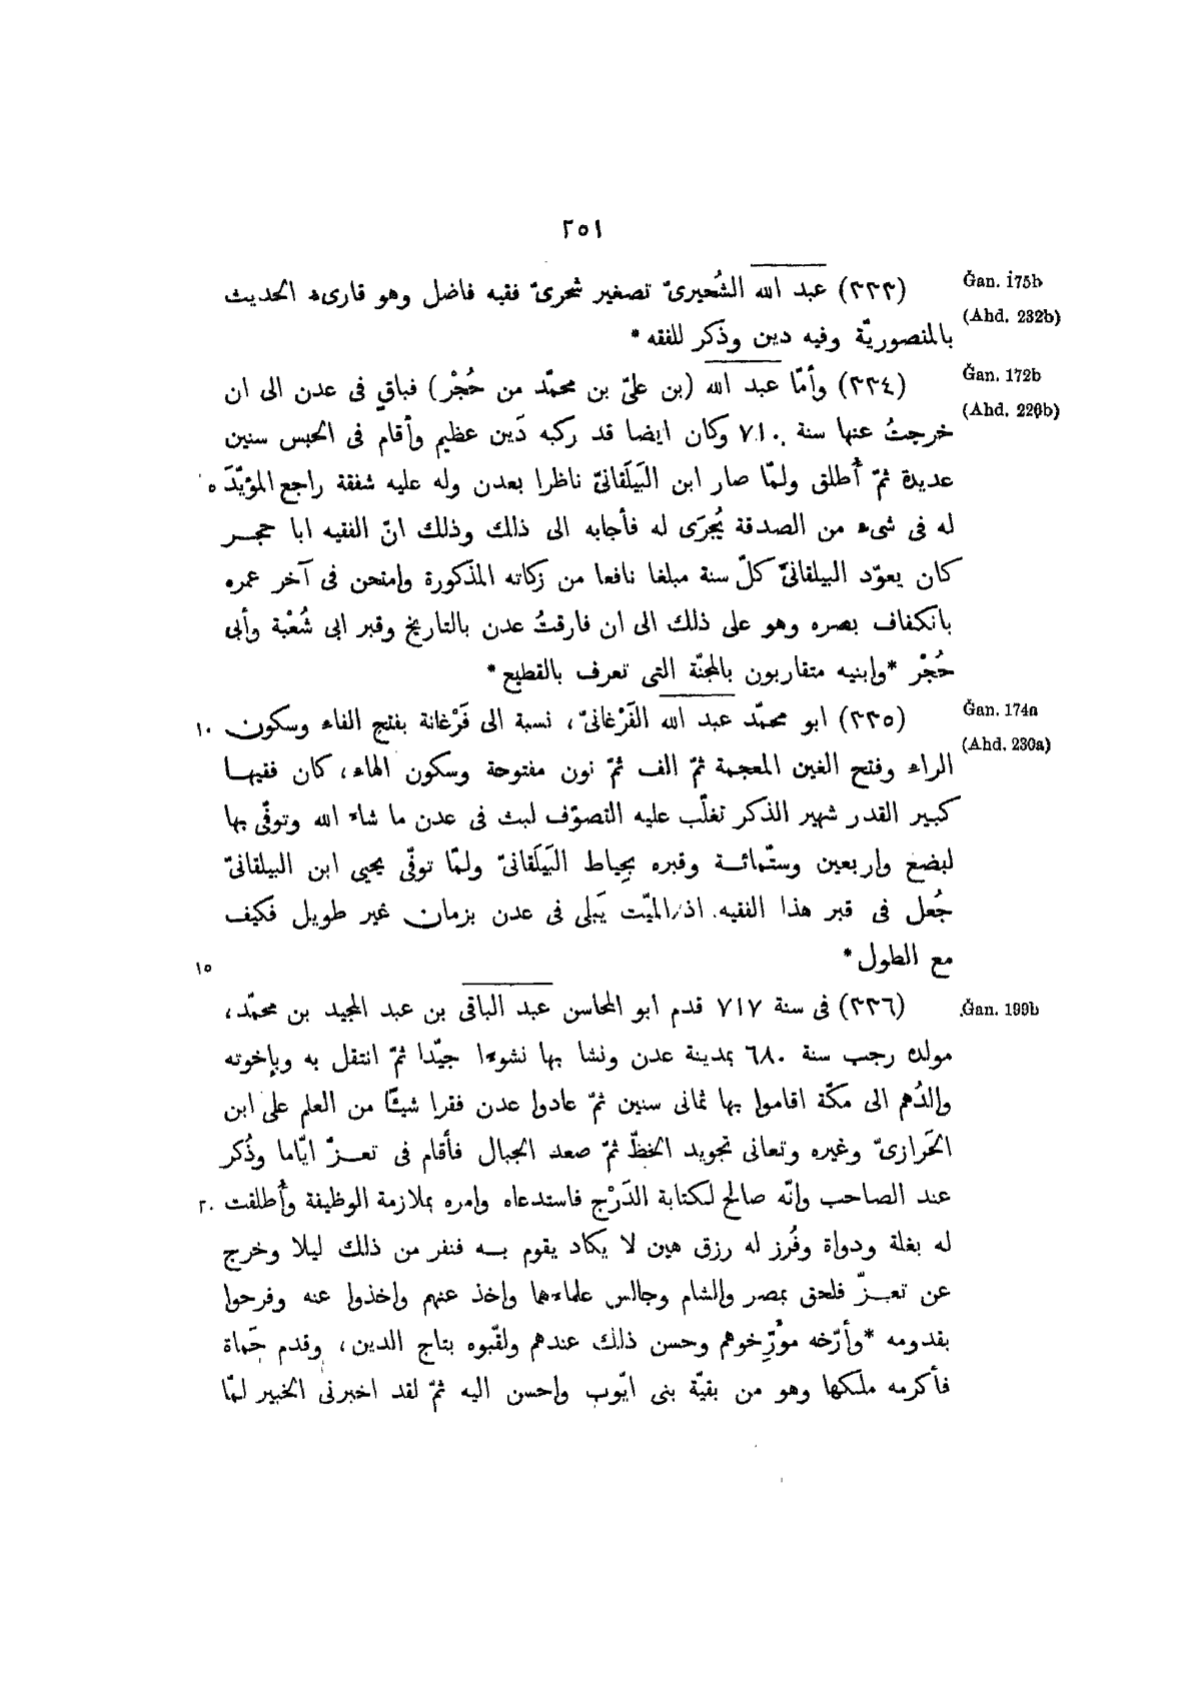 ٢٥١
(٢٣٣) عبد الله الشُحيرىّ تصغير شحرىّ فقيه فاضل وهو قارىء الحديث Ǧan. 175b
بالمنصوريّة وفيه دين وذكر للفقه * (Ahd. 232b)
(٢٣٤) وأمّا عبد الله (بن علىّ بن محمّد من حُجْر) فباقٍ فى عدن الى ان Ǧan. 172b
خرجتُ عنها سنة ٧١٠ وكان ايضا قد ركبه دَين عظيم وأقام فى الحبس سنين (Ahd. 220b)
عديدة ثمّ أُطلق ولمّا صار ابن البَيلَقانىّ ناظرا بعدن وله عليه شفقة راجع المؤيّدَ ٥
له فى شىء من الصدقة يُجرَى له فأجابه الى ذلك وذلك انّ الفقيه ابا حجر
كان يعوّد البيلقانىّ كلّ سنة مبلغا نافعا من زكاته المذكورة وامتحن فى آخر عمره
بانكفاف بصره وهو على ذلك الى ان فارقتُ عدن بالتاريخ وقبر ابى شُعْبة وأبى
حُجْر *وابنيه متقاربون بالمجنّة التى تعرف بالقطيع*
(٢٣٥) ابو محمّد عبد الله الفَرْغانىّ، نسبة الى فَرْغانة بفتح الفاء وسكون ١٠ Ǧan. 174a
الراء وفتح الغين المعجمة ثمّ الف ثمّ نون مفتوحة وسكون الهاء، كان فقيها (Ahd. 230a)
كبير القدر شهير الذكر تغلّب عليه التصوّف لبث فى عدن ما شاء الله وتوفّى بها
لبضع واربعين وستّمائة وقبره بحِياط البَيلَقانىّ ولمّا توفّى يحيى ابن البيلقانىّ
جُعل فى قبر هذا الفقيه. اذ الميّت يَبلى فى عدن بزمان غير طويل فكيف
مع الطول* ١٥
(٢٣٦) فى سنة ٧١٧ قدم ابو المحاسن عبد الباقى بن عبد المجيد بن محمّد، Ǧan. 199b
مولده رجب سنة ٦٨٠ بمدينة عدن ونشا بها نشوءا جيّدا ثمّ انتقل به وبإخوته
والدُهم الى مكّة اقاموا بها ثمانى سنين ثمّ عادوا عدن فقرا شيئًا من العلم على ابن
الحَرازىّ وغيره وتعانى تجويد الخطّ ثمّ صعد الجبال فأقام فى تعزّ ايّاما وذُكر
عند الصاحب وانّه صالح لكتابة الدَرْج فاستدعاه وامره بملازمة الوظيفة وأُطلقت ٢٠
له بغلة ودواة وفُرز له رزق هين لا يكاد يقوم به فنفر من ذلك ليلا وخرج
عن تعزّ فلحق بمصر والشام وجالس علماءها واخذ عنهم واخذوا عنه وفرحوا
بقدومه *وأرّخه مؤرّخوهم وحسن ذلك عندهم ولقّبوه بتاج الدين، وقدم حَماة
فأكرمه ملكها وهو من بقيّة بنى ايّوب واحسن اليه ثمّ لقد اخبرنى الخبير لمّا